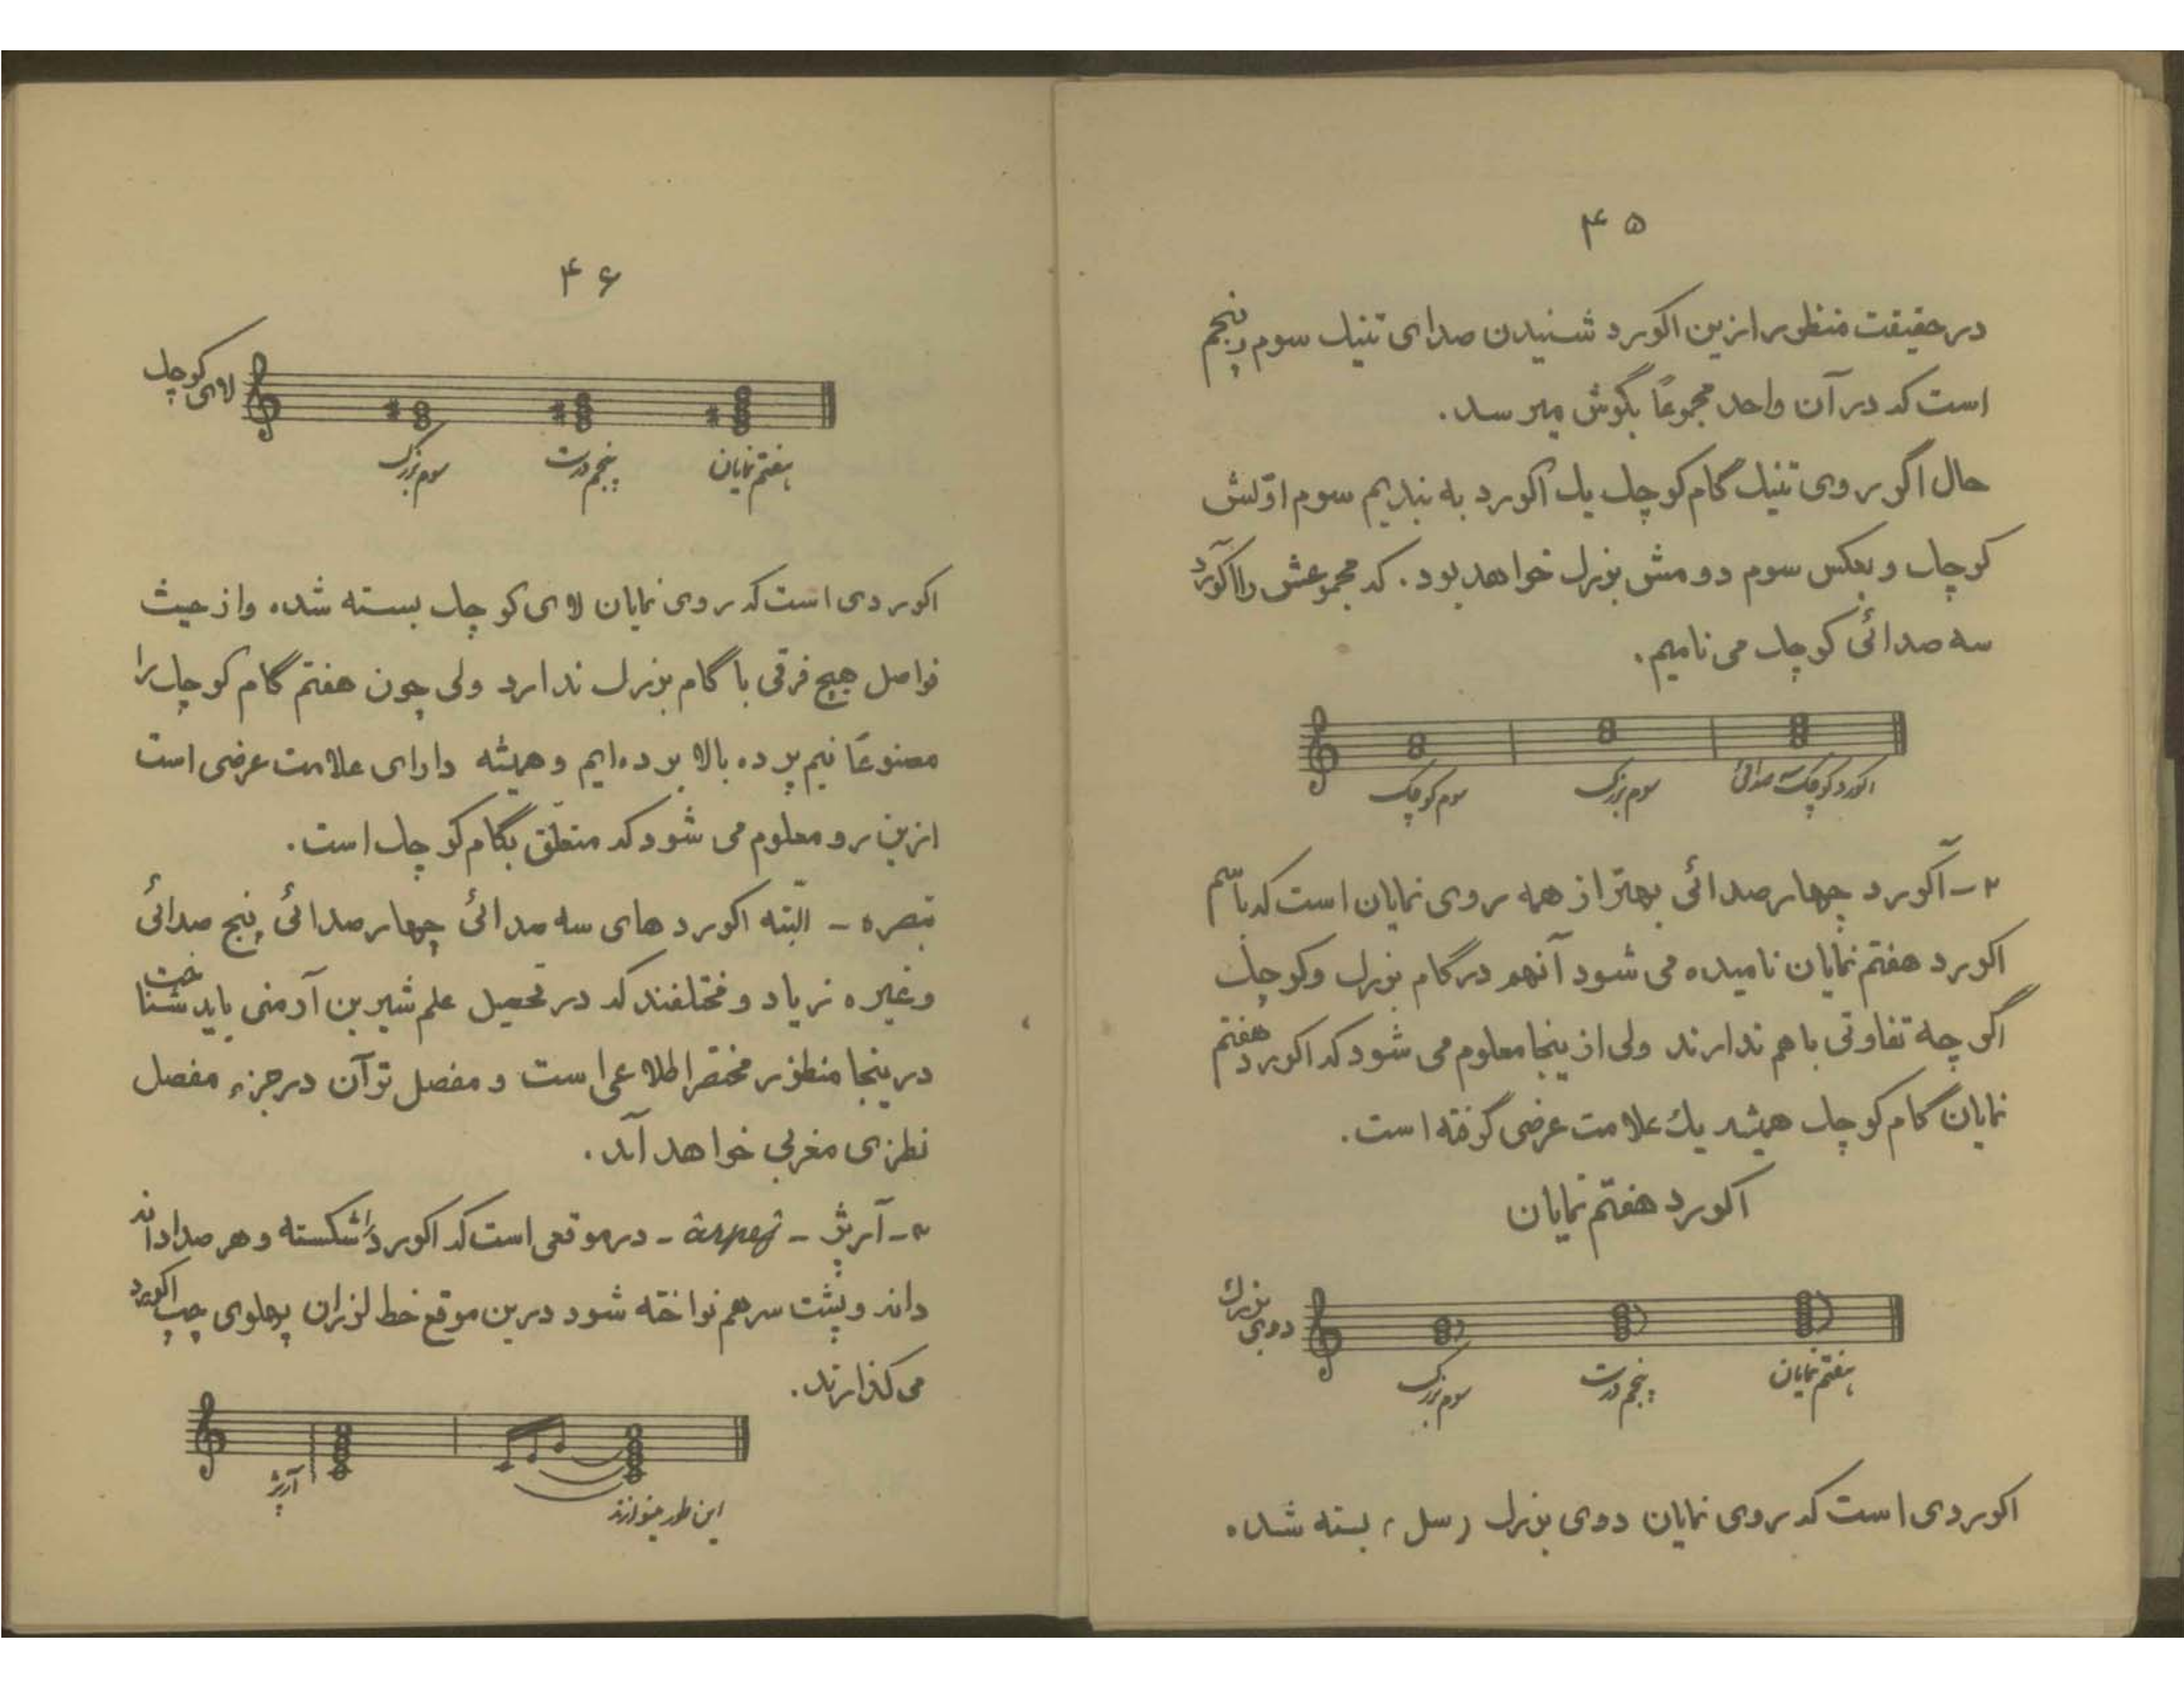 ۴۵
در حقیقت منظور ازین اکورد شنیدن صدای تنیک سوم و پنجم
است که در آن واحد مجموعاً بگوش میرسد.
حال اگر روی تنیک گام کوچک یک آکورد به بندیم سوم اوّلش
کوچک و بعکس سوم دومش بزرک خواهد بود. که مجموعش را آکورد
سه صدائی کوچک می نامیم.
سوم کوچک
سوم بزرک
اکورد کوچک سه صدائی
۲- آکورد چهار صدائی بهتر از همه روی نمایان است که باسم
اکورد هفتم نمایان نامیده می شود آنهم در گام بزرک و کوچک
اگر چه تفاوتی با هم ندارند ولی از ینجا معلوم می شود که اکورد هفتم
نمایان گام کوچک همیشه یک علامت عرضی گرفته است.
اکورد هفتم نمایان
دوی بزرک
سوم بزرک
پنجم درست
هفتم نمایان
اکوردی است که روی نمایان دوی بزرک (سل) بسته شده
۴۶
لای کوچک
سوم بزرک
پنجم درست
هفتم نمایان
اکوردی است که روی نمایان لای کوچک بسته شده و از حیث
فواصل هیچ فرقی با گام بزرک ندارد ولی چون هفتم گام کوچک را
مصنوعاً نیم پرده بالا برده ایم و همیشه دارای علامت عرضی است
ازین رو معلوم می شود که متعلّق بگام کوچک است.
تبصره - البتّه اکورد های سه صدائی چهار صدائی پنج صدائی
و غیره زیاد و مختلفند که در تحصیل علم شیرین آرمنی باید شناخت
در ینجا منظور مختصر اطلاعی است و مفصل تر آن در جزء مفصل
نظری مغربی خواهد آمد.
۳- آرپژ - arpeg - در موقعی است که اکورد را شکسته و هر صدا دانه
دانه و پشت سر هم نواخته شود درین موقع خط لرزان پهلوی چپ اکورد
می گذارند.
آرپژ
این طور مینوازند